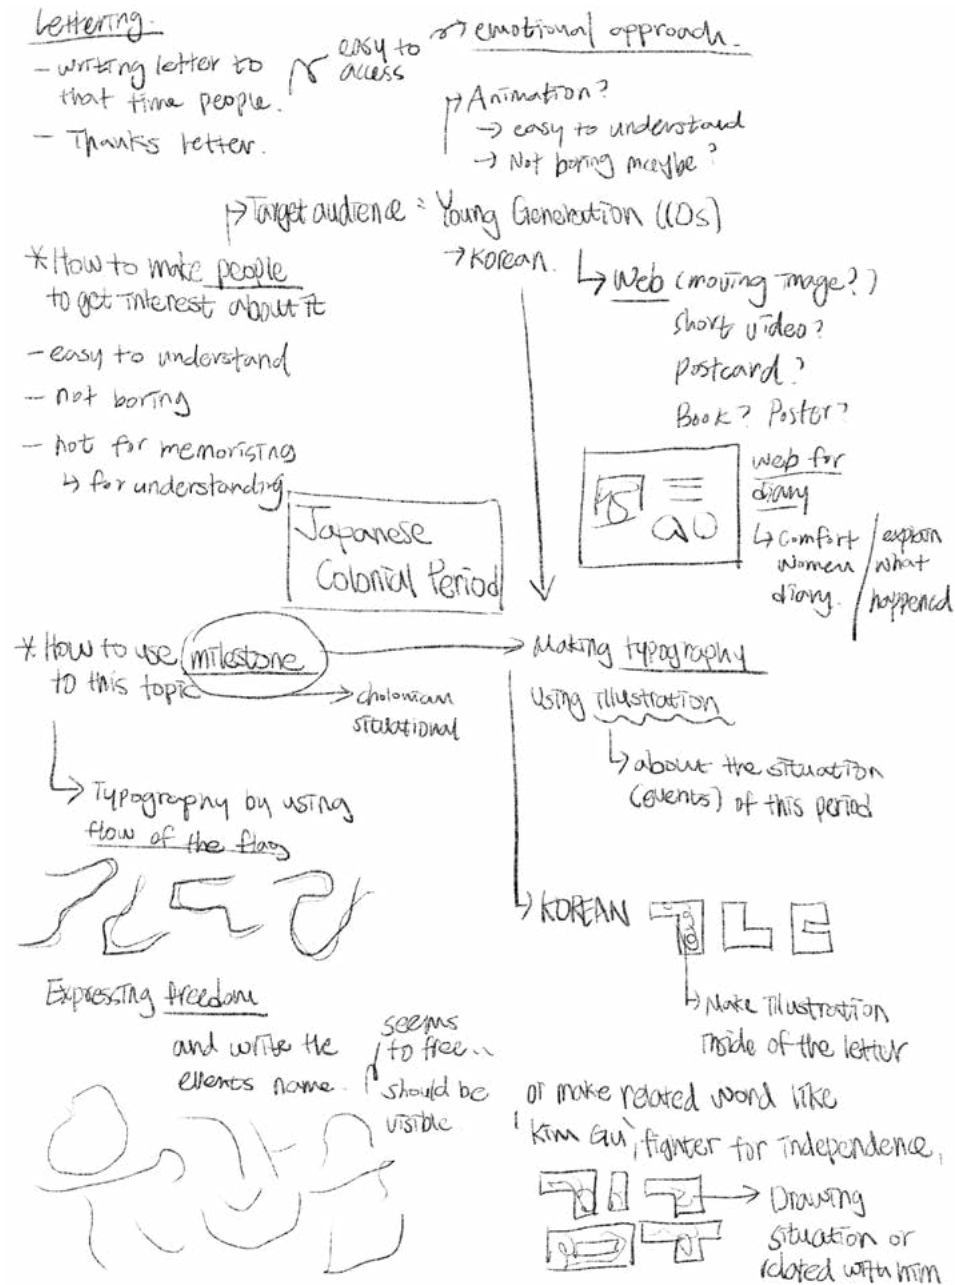 Lettering.
- writing letter to
that time people.
- Thanks letter.
easy to
access
→ emotional approach.
→ Animation?
→ easy to understand
→ Not boring maybe?
→ Target audience = Young Generation (10s)
→ Korean.
→ Web (moving image?)
short video?
postcard?
Book? Poster?
web for
diary
→ Comfort
women
diary.
/ explain
what
happened
* How to make people
to get interest about it
- easy to understand
- not boring
- not for memorising
↳ for understanding
Japanese
Colonial Period
* How to use milestone
to this topic
→ cholonian
situational
→ Typography by using
flow of the flag
Expressing freedom
and write the
events name.
seems
to free..
should be
visible
→ Making typography
using illustration
↳ about the situation
(events) of this period
→ KOREAN ㄱ ㄴ ㄷ
↳ Make illustration
inside of the letter
or make related word like
'Kim Gu', fighter for independence,
→ Drawing
situation or
related with him